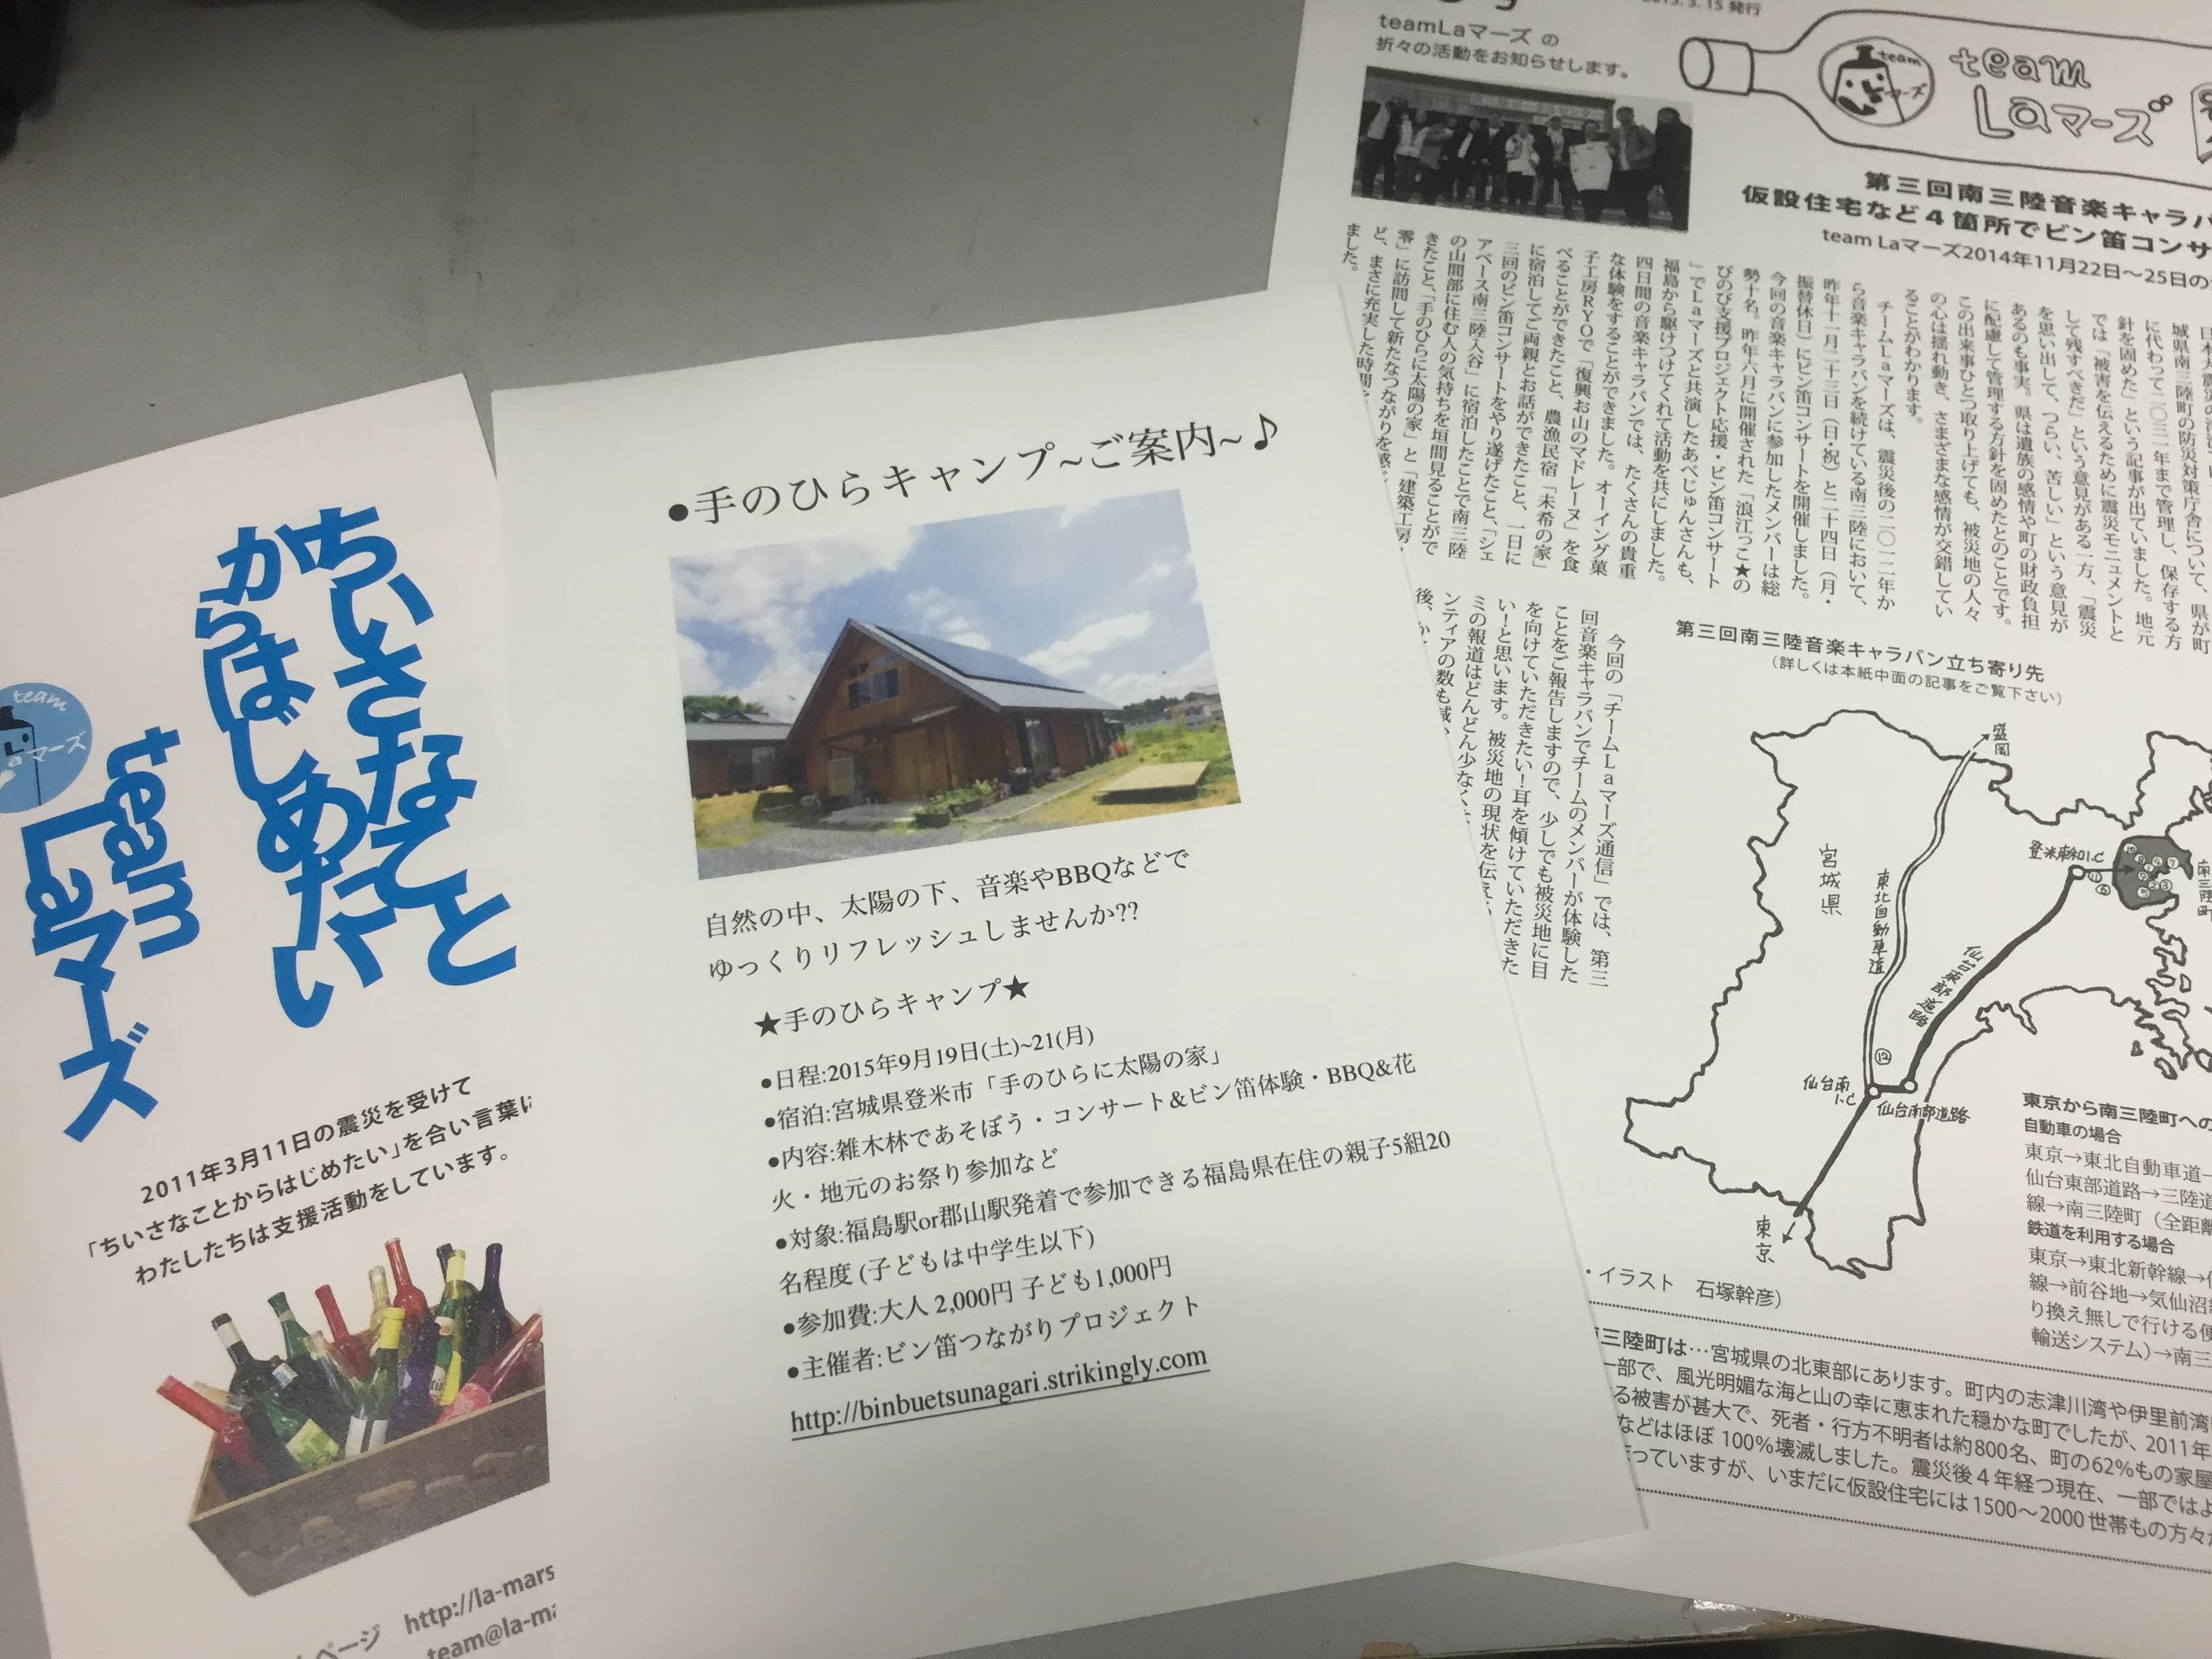 ちいさなことから
はじめたい
team
Laマーズ
team
マーズ
2011年3月11日の震災を受けて
「ちいさなことからはじめたい」を合い言葉に
わたしたちは支援活動をしています。
ページ http://la-mars
team@la-ma
●手のひらキャンプ~ご案内~♪
自然の中、太陽の下、音楽やBBQなどで
ゆっくりリフレッシュしませんか??
★手のひらキャンプ★
●日程:2015年9月19日(土)~21(月)
●宿泊:宮城県登米市「手のひらに太陽の家」
●内容:雑木林であそぼう・コンサート&ビン笛体験・BBQ&花
火・地元のお祭り参加など
●対象:福島駅or郡山駅発着で参加できる福島県在住の親子5組20
名程度 (子どもは中学生以下)
●参加費:大人 2,000円 子ども1,000円
●主催者:ビン笛つながりプロジェクト
http://binbuetsunagari.strikingly.com
3.15 発行
teamLaマーズ の
折々の活動をお知らせします。
team
マーズ
team
Laマーズ
第三回南三陸音楽キャラバ
仮設住宅など4箇所でビン笛コンサ
team Laマーズ2014年11月22日〜25日の
城県南三陸町の防災対策庁舎について、県が町
に代わって二〇三一年まで管理し、保存する方
針を固めた」という記事が出ていました。地元
では「被害を伝えるために震災モニュメントと
して残すべきだ」という意見がある一方、「震災
を思い出して、つらい、苦しい」という意見が
あるのも事実。県は遺族の感情や町の財政負担
に配慮して管理する方針を固めたとのことです。
この出来事ひとつ取り上げても、被災地の人々
の心は揺れ動き、さまざまな感情が交錯してい
ることがわかります。
チームLaマーズは、震災後の二〇一二年か
ら音楽キャラバンを続けている南三陸において、
昨年十一月二十三日（日・祝）と二十四日（月・
振替休日）にビン笛コンサートを開催しました。
今回の音楽キャラバンに参加したメンバーは総
勢十名。昨年六月に開催された「浪江っこ★の
びのび支援プロジェクト応援・ビン笛コンサート
」でLaマーズと共演したあべじゅんさんも、
福島から駆けつけてくれて活動を共にしました。
四日間の音楽キャラバンでは、たくさんの貴重
な体験をすることができました。オーイング菓
子工房RYOで「復興お山のマドレーヌ」を食
べることができたこと、農漁民宿「未希の家」
に宿泊してご両親とお話ができたこと、一日に
三回のビン笛コンサートをやり遂げたこと、「シェ
アベース南三陸入谷」に宿泊したことで南三陸
の山間部に住む人の気持ちを垣間見ることがで
きたこと、「手のひらに太陽の家」と「建築工房・
零」に訪問して新たなつながりを感
ど、まさに充実した時間
ました。
今回の「チームLaマーズ通信」では、第三
回音楽キャラバンでチームのメンバーが体験した
ことをご報告しますので、少しでも被災地に目
を向けていただきたい！耳を傾けていただきた
い！と思います。被災地の現状を伝え
ミの報道はどんどん少なく
ンティアの数も減
後、か
第三回南三陸音楽キャラバン立ち寄り先
（詳しくは本紙中面の記事をご覧下さい）
盛岡
登米東和I.C
宮城県
東北自動車道
仙台東部道路
⑫
仙台南I.C
仙台南部道路
東京
・イラスト 石塚幹彦）
東京から南三陸町への
自動車の場合
東京→東北自動車道→
仙台東部道路→三陸道
線→南三陸町（全距離
鉄道を利用する場合
東京→東北新幹線→
線→前谷地→気仙沼
り換え無しで行ける便
輸送システム)→南三
三陸町は…宮城県の北東部にあります。町内の志津川湾や伊里前湾
一部で、風光明媚な海と山の幸に恵まれた穏かな町でしたが、2011年
る被害が甚大で、死者・行方不明者は約800名、町の62%もの家屋
などはほぼ 100%壊滅しました。震災後4年経つ現在、一部では
っていますが、いまだに仮設住宅には1500〜2000世帯もの方々